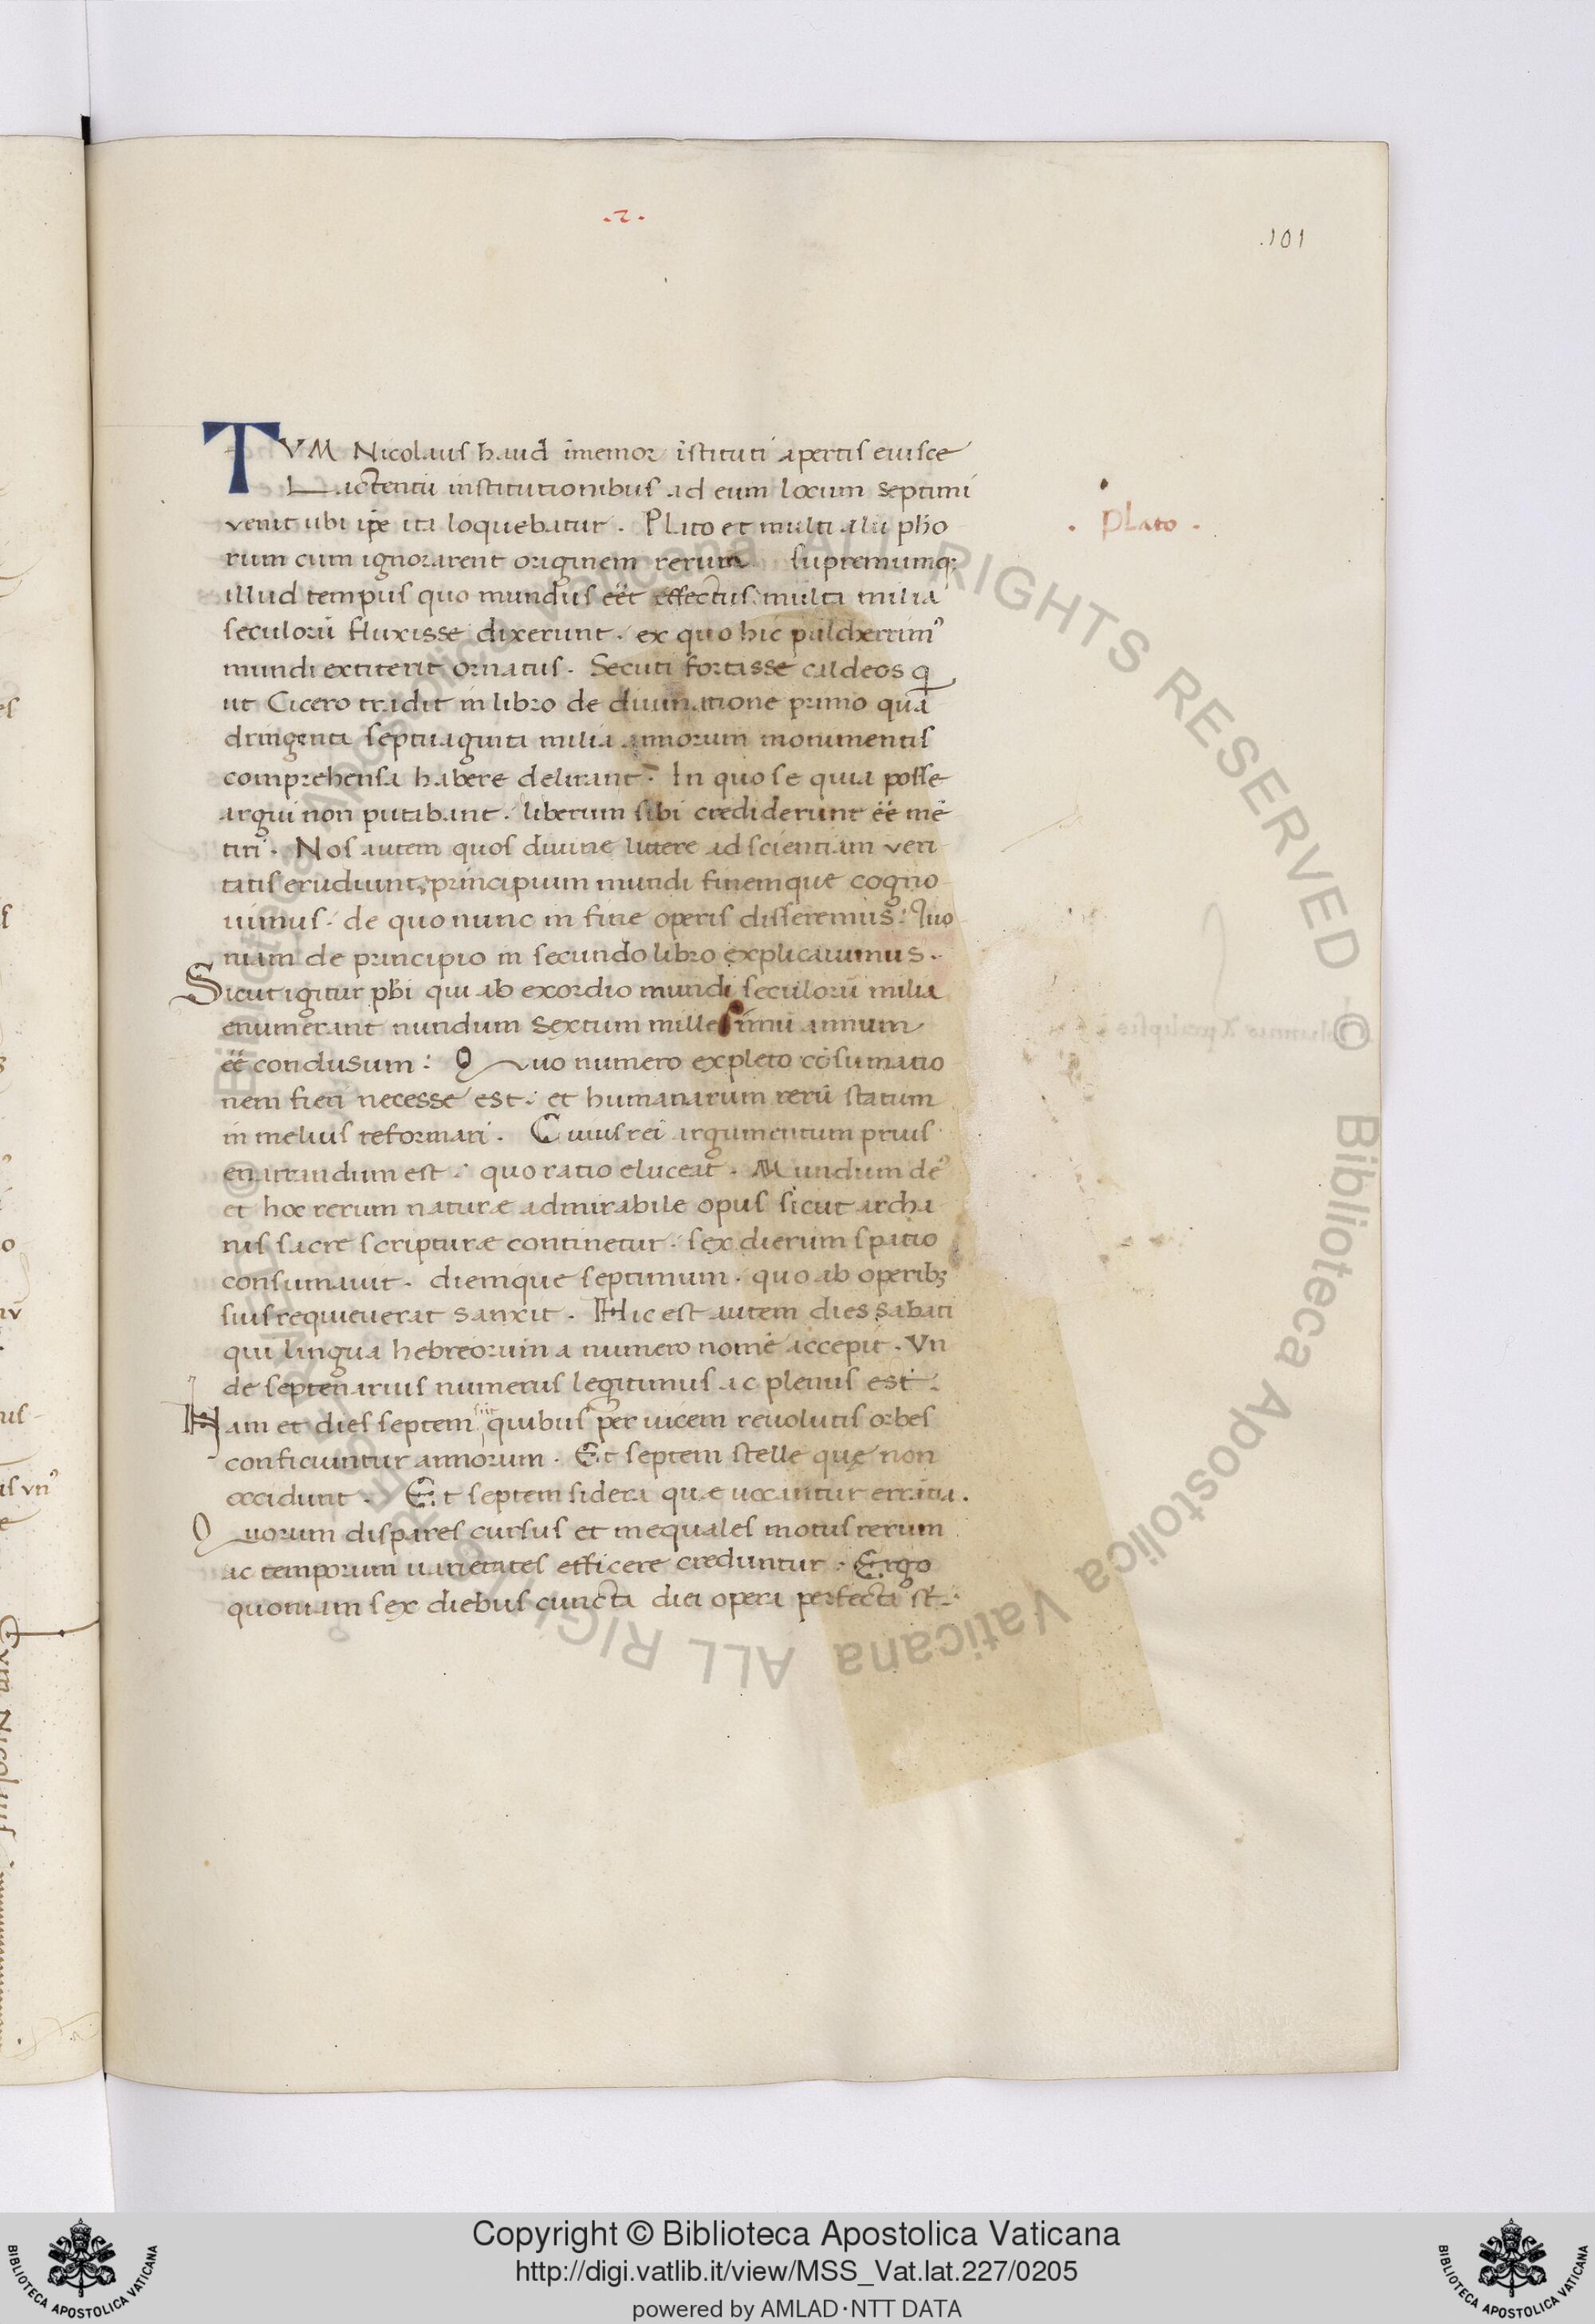 .2.
.101
TVM Nicolaus haud īmemor īstituti apertis eiusce
Lactentii institutionibus ad eum locum septimi
venit ubi ipe ita loquebatur . PLato et multi alii pħo
. pLato .
rum cum ignorarent originem rerum supremumq;
illud tempus quo mundus eēt effectus multa milia
seculorū fluxisse dixerunt . ex quo hic pulcherrim⁹
mundi extiterit ornatus . Secuti fortasse caldeos q
ut Cicero tradit in libro de diuinatione primo qua
dringenta septuaginta milia annorum monumentis
comprehensa habere delirant . In quo se quia posse
argui non putabant . liberum sibi crediderunt eē mē
tiri . Nos autem quos diuine littere ad scientiam veri
tatis erudiunt, principium mundi finemque cogno
uimus . de quo nunc in fine operis disseremus : Quo
niam de principio in secundo libro explicauimus .
Sicut igitur pħi qui ab exordio mundi seculorū milia
enumerant nundum sextum millesimū annum
eē conclusum : Quo numero expleto cōsumatio
nem fieri necesse est . et humanarum rerū statum
in melius reformari . Cuius rei argumentum prius
enarrandum est . quo ratio eluceat . Mundum de⁹
et hoc rerum naturæ admirabile opus sicut archa
nis sacre scripturæ continetur . sex dierum spatio
consumauit . diemque septimum . quo ab operib;
suis requieuerat sanxit . Hic est autem dies sabati
qui lingua hebreorum a numero nomē accepit . Vn
de septenarius numerus legitimus ac plenus est .
Nam et dies septem sūt quibus per uicem reuolutis orbes
conficiuntur annorum . Et septem stelle quę non
occidunt . Et septem sidera quæ uocantur erratia .
Quorum dispares cursus et inequales motus rerum
ac temporum uarietates efficere creduntur . Ergo
quoniam sex diebus cuncta diei opera perfecta st̄ .
Copyright © Biblioteca Apostolica Vaticana
http://digi.vatlib.it/view/MSS_Vat.lat.227/0205
powered by AMLAD·NTT DATA